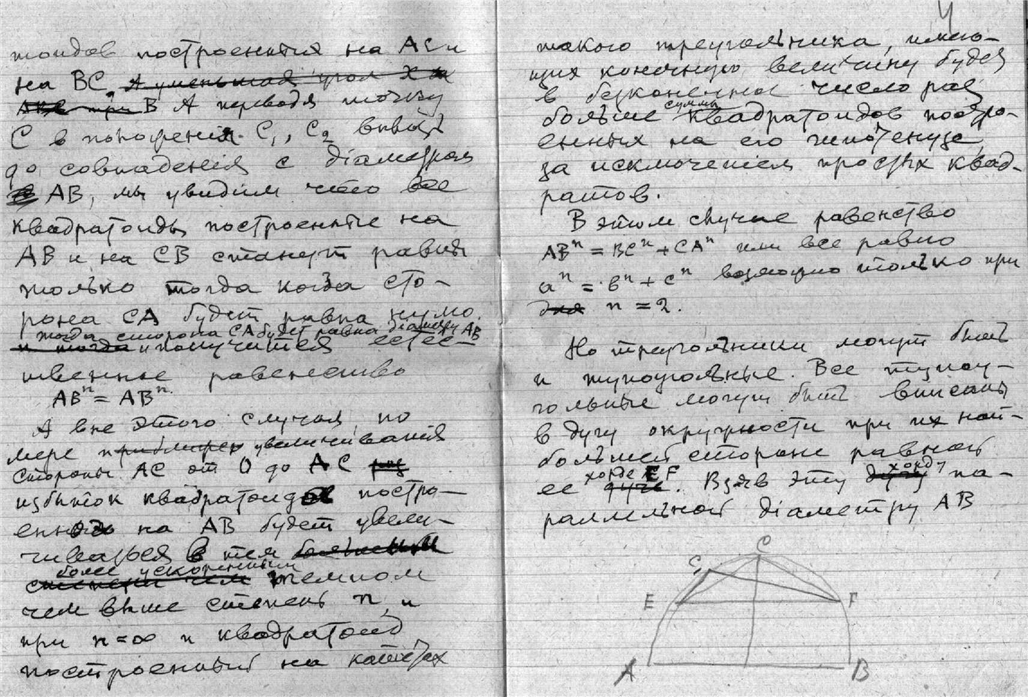 тоидов построенных на AC и
на BC. А уменьшая угол
при B А переводя точку
C в положения C₁, C₂ вплоть
до совпадения с діаметром
AB, мы увидим что все
квадратоиды построенные на
AB и на CB станут равны
только тогда когда сто-
рона CA будет равна нулю.
тогда сторона CA будет равна діаметру AB
и тогда и получится естест-
венное равенство
ABⁿ = ABⁿ.
А вне этого случая, по
мере примерно увеличивания
стороны AC от 0 до AC
избыток квадратоидов постро-
енных на AB будет увели-
чиваться в тем большем
более ускоренным
степени чем темпом
чем выше степень n, и
при n=∞ n квадратоид
построенный на катетах
4
такого треугольника, имею-
щих конечную величину будет
в бесконечное число раз
суммы
больше квадратоидов постро-
енных на его гипотенузе,
за исключением простых квад-
ратов.
В этом случае равенство
ABⁿ = BCⁿ + CAⁿ или все равно
aⁿ = bⁿ + cⁿ возможно только при
для n = 2.
Но треугольники могут быть
и тупоугольные. Все тупоу-
гольные могут быть вписаны
в дугу окружности при их наи-
большей стороне равной
хорде EF хорду
ее дуги. Взяв эту дугу па-
раллельной діаметру AB
C
C₁
E F
A B